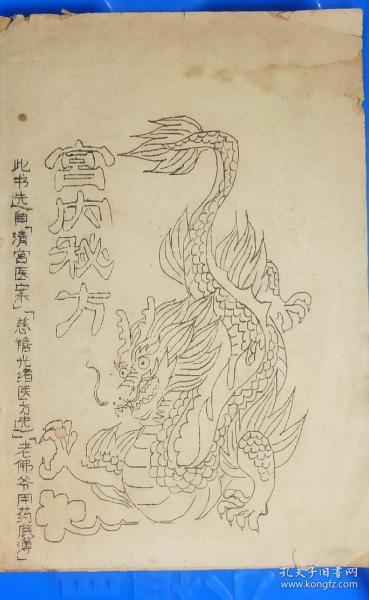 宫内秘方
此书选自「清宫医案」「慈禧光绪医方选」「老佛爷用药底簿」
孔夫子旧书网